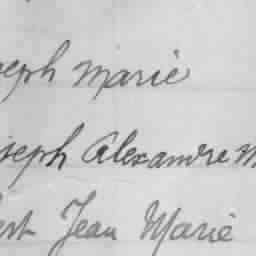 seph Marie
seph Alexandre M
Jean Marie